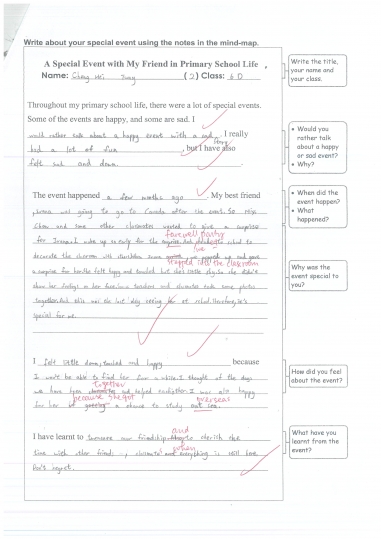 Write about your special event using the notes in the mind-map.
A Special Event with My Friend in Primary School Life
Name: (2) Class: 6D
Write the title, your name and your class.
Throughout my primary school life, there were a lot of special events.
Some of the events are happy, and some are sad. I
would rather talk about a happy event with a sad. I really
had a lot of fun, but I have also
felt sad and down.
Would you rather talk about a happy or sad event?
Why?
The event happened a few months ago. My best friend
will going to go to Canada after the event. So Miss
Chow and some other classmates wanted to give a surprise
farewell party
for I wake up so early for the surprise And school to
decorate the classroom with
stepped into the classroom
a surprise for her. She felt happy and but she's little shy. So she didn't
show her feelings on her face. teachers and classmates took some photo
together. And this was the last day seeing her at school. Therefore, it's
special for me.
When did the event happen?
What happened?
Why was the event special to you?
I felt little down, and happy because
I won't be able to find her for a while. I thought of the days
together
we have been and helped eachother. I was also happy
because she got overseas
for her a chance to study
How did you feel about the event?
I have learnt to our friendship and cherish the
time with other friends, classmate when everything is still here
Don't regret.
What have you learnt from the event?